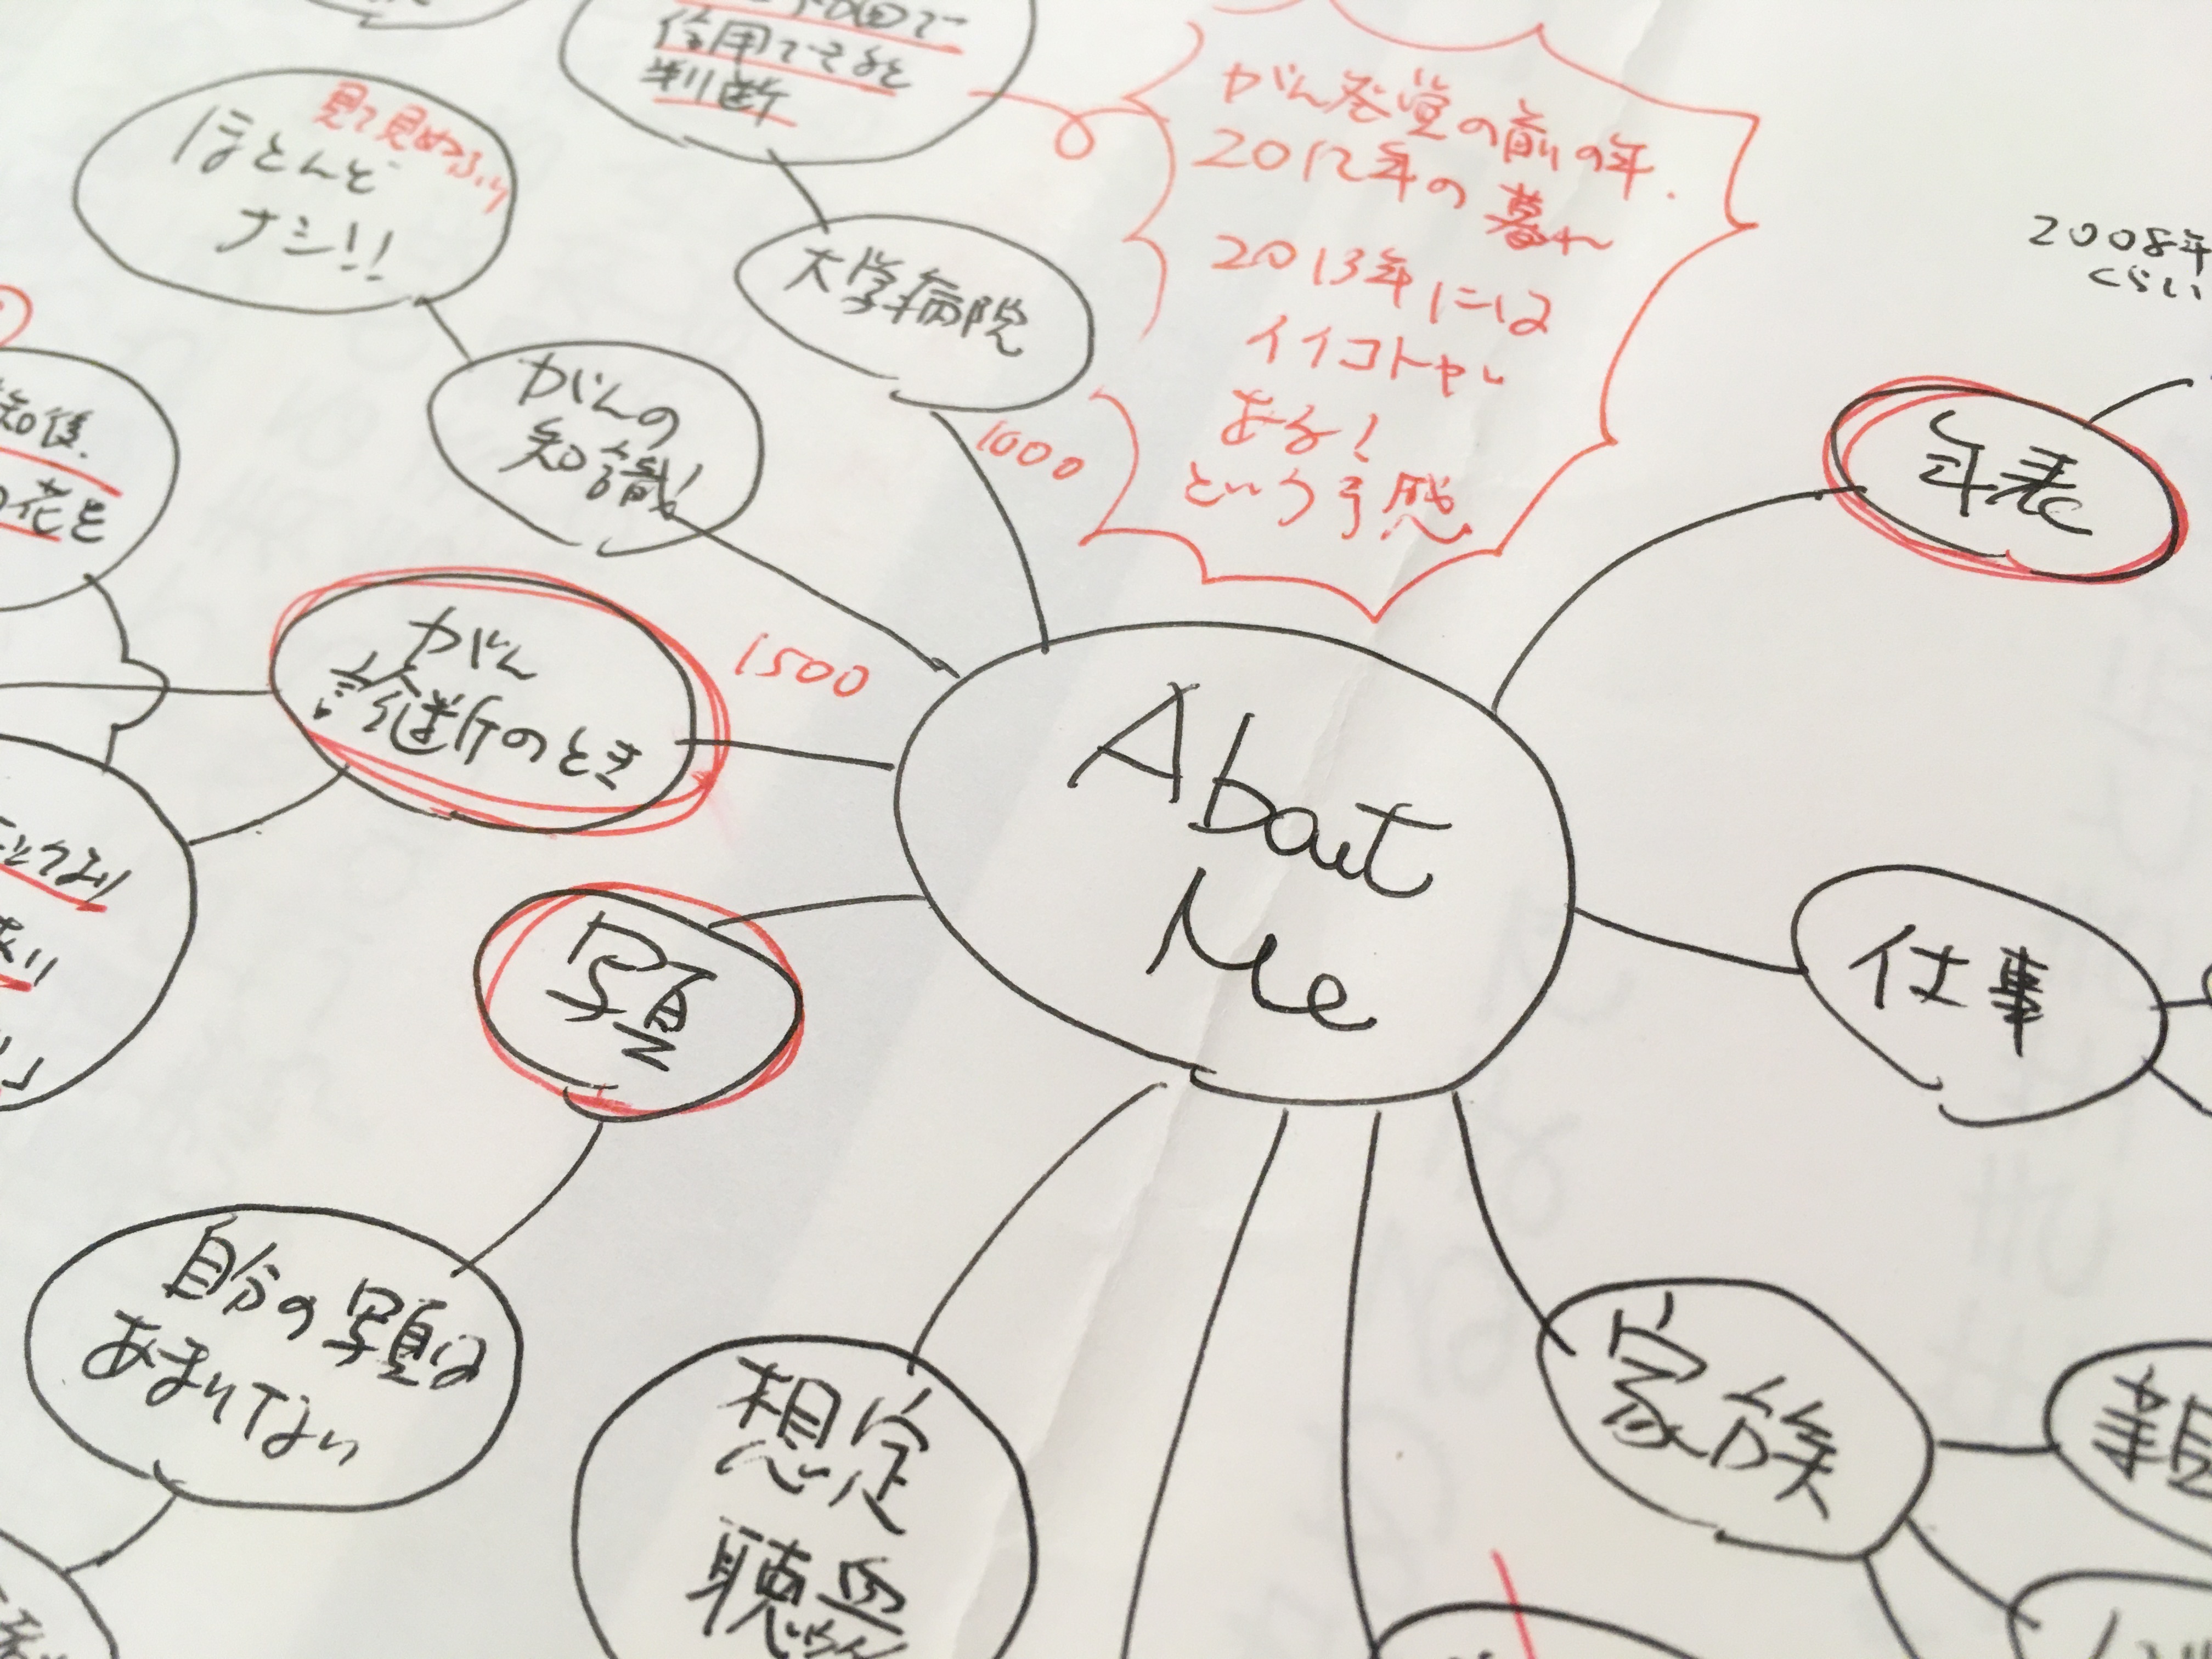 信用できると
判断
見て見ぬふり
ほとんど
ナシ!!
大学病院
がんの
知識!
がん発覚の前の年.
2012年の暮れ
2013年には
イイコトが
ある!
という予感
1000
2008年
くらい
年表
知後.
の花を
がん
診断のとき
1500
About
Me
写真
仕事
自分の写真は
あまりない
想定
聴衆
家族
親